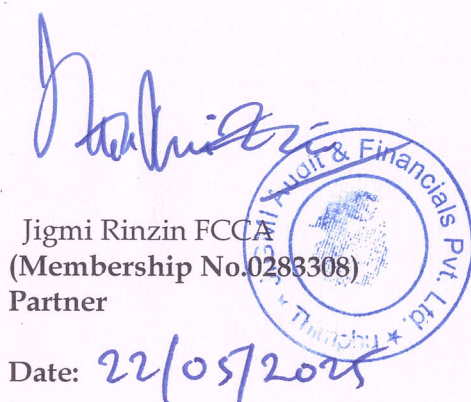 Jigmi Rinzin FCCA
(Membership No.0283308)
Partner
Date: 22/05/2025
JIGMI Audit & Financials Pvt. Ltd.
* Thimphu *